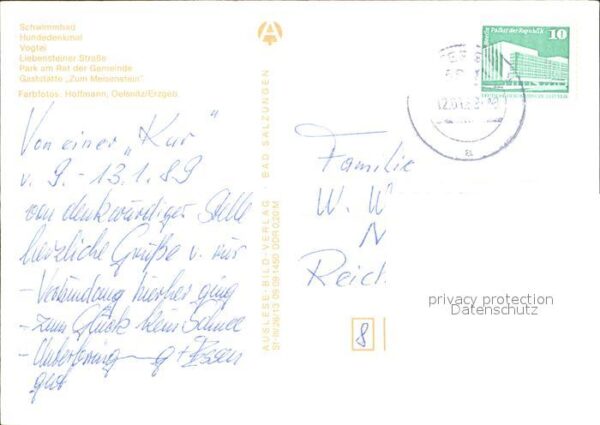 Schwimmbad
Hundedenkmal
Vogtei
Liebensteiner Straße
Park am Rat der Gemeinde
Gaststätte „Zum Meisenstein“
Farbfotos: Hoffmann, Oelsnitz/Erzgeb.
Von einer „Kur“
v. 9. - 13.1.89
von denkwürdiger Stelle
herzliche Grüße v. mir
- Verbindung hierher ging
- zum Glück kein Schnee
- Unterbringung + Essen
gut
AUSLESE-BILD-VERLAG BAD SALZUNGEN
St-III/26/13 09 09 1450 DDR 0,20 M
Berlin Palast der Republik
10
Familie
W. W
N
Reich
8
privacy protection
Datenschutz